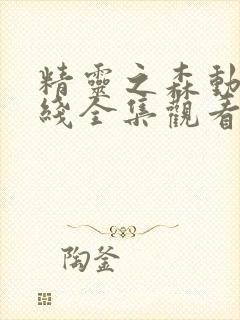 精靈之森動
綫全集觀看
陶釜